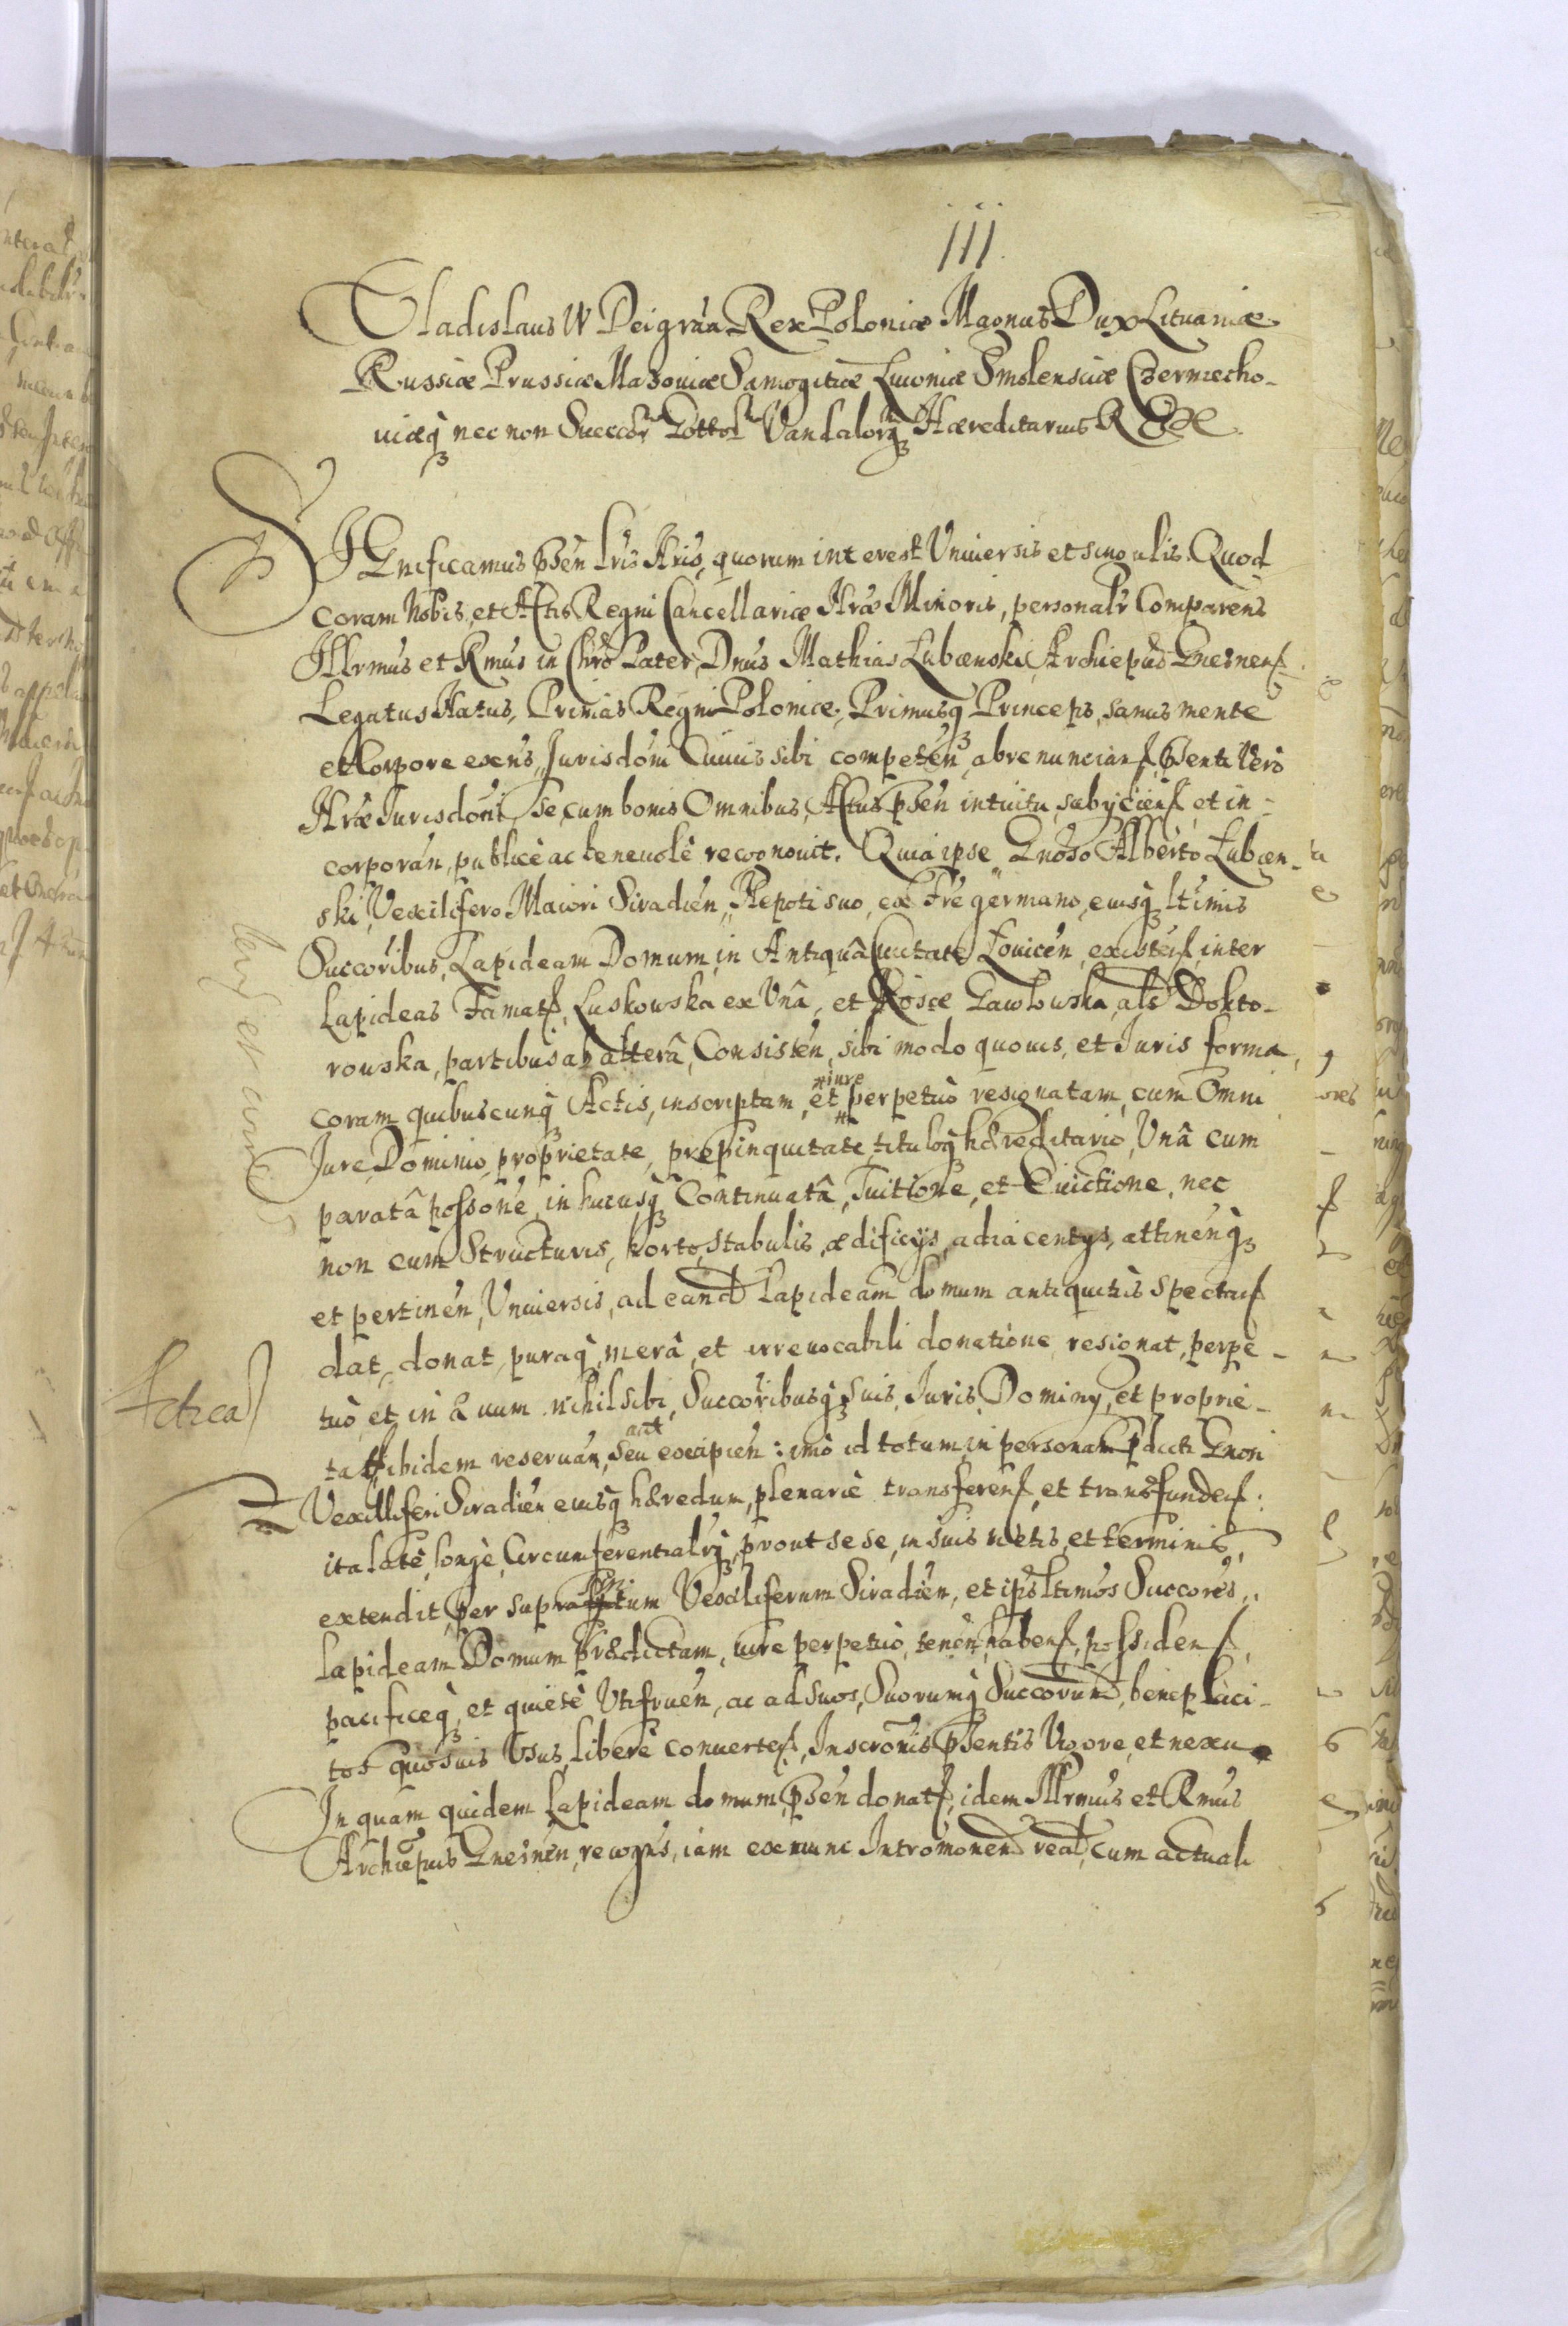 111.
Vladislaus IV Dei gra͠a Rex Poloniæ Magnus Dux Lituaniæ
Russiæ Prussiæ Mazoviæ Samogitiæ Livoniæ Smolensciæ Czerniecho-
viæq̓ nec non Sueccor Gottor Vandalorq̓ Hæreditarius REX.
SIGnificamus pñsen̄ lr̄is N̄ris, quorum interest Vniuersis et singulis. Quod
coram Nobis, et Actis Regni Cancellariæ N̄ræ Minoris, personalr̄ Comparens
Illr̄mus et R̄mus in Chr̄o Pater, Dn̄us Mathias Lubænski, Archiep̄us Gnesnens
Legatus Natus, Primas Regni Poloniæ, Primusq̓ Princeps, sanus mente
et Corpore exn̄s, Jurisdōni Cuiuis sibi competen̄, abrenuncians, pñsenti vero
N̄ræ Jurisdōni, se cum bonis Omnibus, Actus pñsen̄ intuitu, subÿcien̄s, et in-
corporan̄, publicè ac beneuolè recognouit. Quia ipse Gn̄oso Alberto Lubæn-
ski, Vexilifero Maiori Siradien̄, Nepoti suo, ex Fr̄e germano, eiusq̓ lt̄imis
Succōribus, Lapideam Domum, in Antiquâ Ciuitate Louicen̄, existen̄s, inter
Lapideas Famat, Luskowska ex Vnâ, et Rosæ Gawlowska, als̄ Dokto-
rowska, partibus ab alterâ, Consisten̄, sibi modo quouis, et Juris forma,
iure
coram quibuscunq̓ Actis, inscriptam, et perpetuò resignatam, cum Omni
Jure, Dominio, proprietate, propinquitate, tituloq̓ hæreditario, Vnâ cum
paratâ possōne, in hucusq̓ Continuatâ, Tuitione, et Euictione, nec
non cum Structuris, horto, stabulis, ædificÿs, adiacentÿs, attinen̄q̓
et pertinen̄, Vniuersis, ad eand̄ Lapideam domum antiquitùs spectan̄s
dat, donat, puraq̓, merâ, et irreuocabili donatione, resignat, perpe-
Actica
tuò, et in æuum. nihil sibi, Succōribusq̓ suis, Juris, Dominÿ, et proprie-
aut
tat ibidem reseruan̄, seu excipien̄: imò id totum, in personam p̄dicti Gn̄osi
Vexilliferi Siradien̄ eiusq̓ hæredum, plenariè transferen̄s, et transfunden̄s:
ita latè, longè, Circumferentialr̄q̓, prout sese, in suis metis, et terminis,
extendit, per supra tum Vexiliferum Siradien̄, et ips̄ lt̄imos Succōres,
Lapideam Domum prædictam, iure perpetuò, tenen̄, haben̄s, possiden̄s,
pacificeq̓, et quietè Vtifruen̄, ac ad suos, Suorumq̓ Succōrum, beneplaci-
tos quosuis Vsus, liberè conuerten̄s, Inscrōnis pñsentis Vigore, et nexu
In quam quidem Lapideam domum, pñsen̄ donat, idem Illr̄mus et R̄mus
Archiep̄us Gnesnen̄, recogn̄s, iam ex nunc Intromonem̄ real, cum actuali